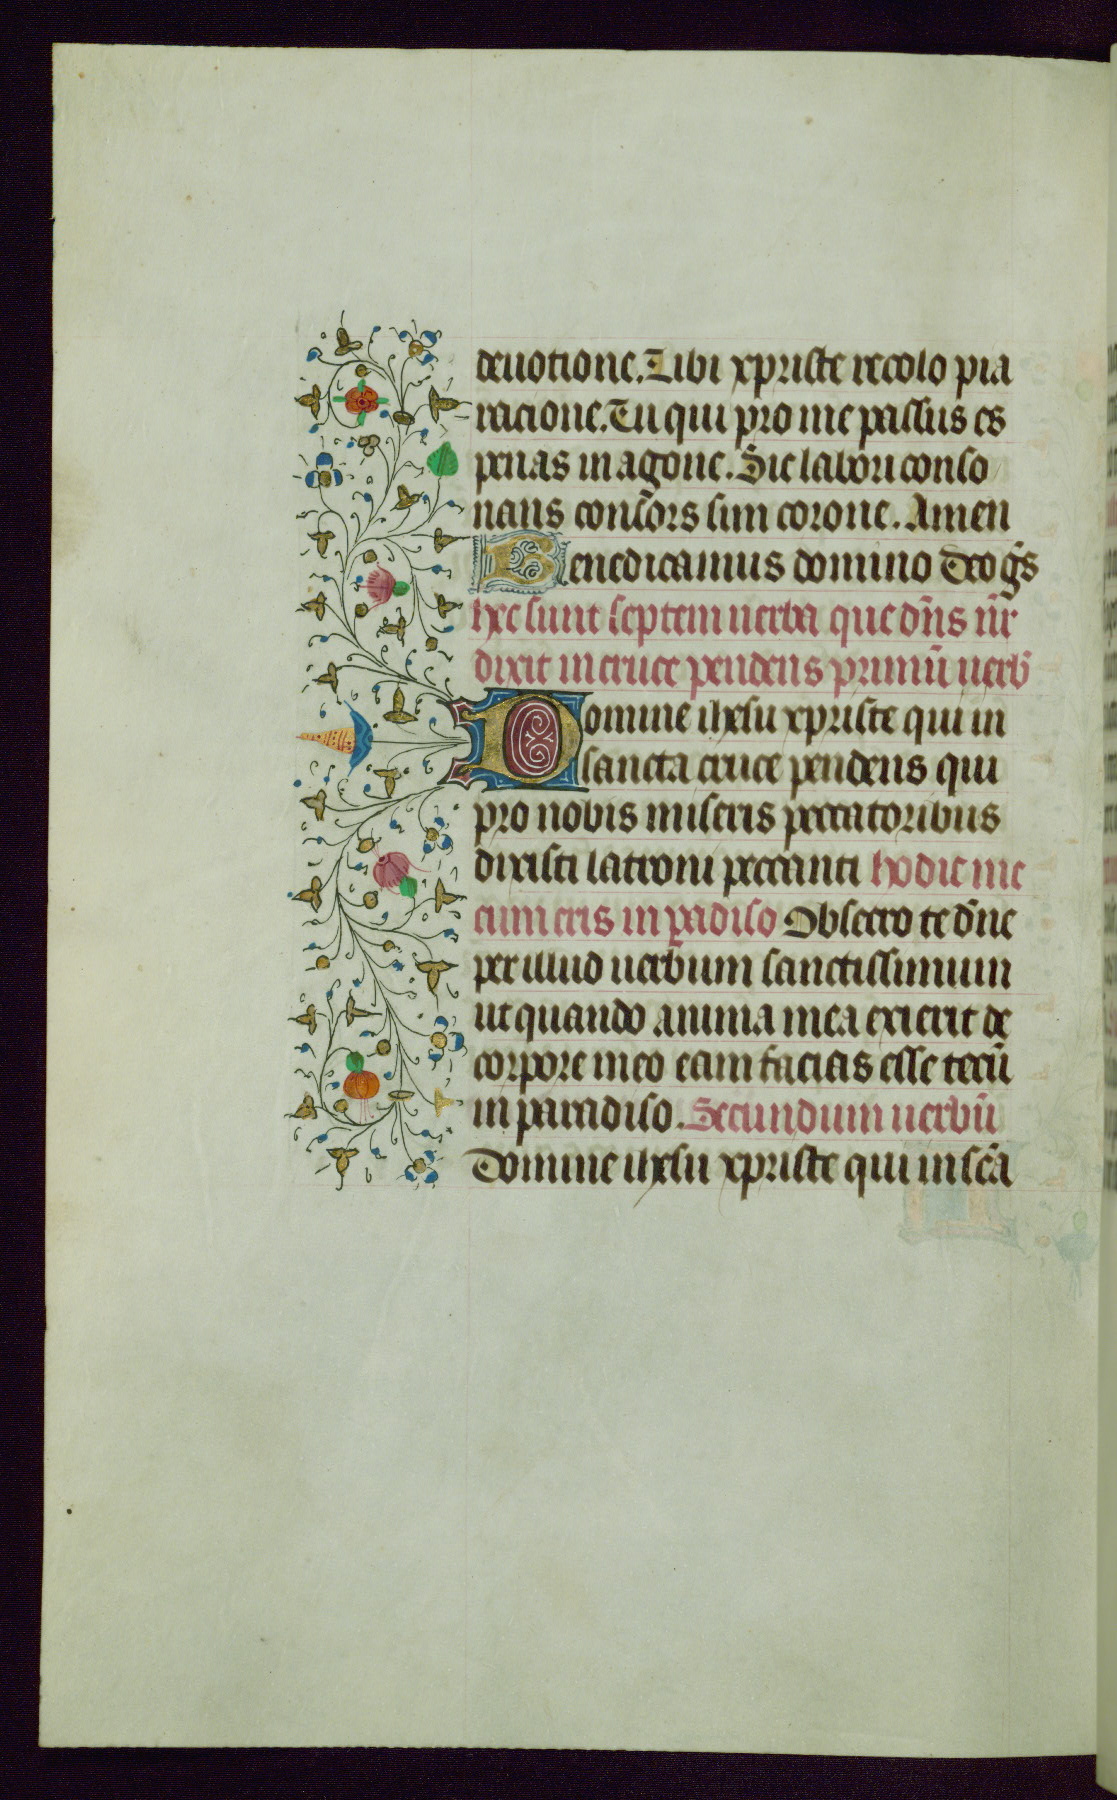 deuotione. Tibi xpriste recolo pia
racione. Tu qui pro me passus es
penas in agone. Sic labori conso
nans consors sim corone. Amen
Benedicamus domino Deo gr̄s
hec sunt septem uerba que dn̄s nr̄
dixit in cruce pendens primū uerb̄
Domine ihesu xpriste qui in
sancta cruce pendens qui
pro nobis miseris peccatoribus
dixisti latroni peccanti hodie me
cum eris in padiso Obsecro te dn̄e
per illud uerbum sanctissimum
ut quando anima mea exierit de
corpore meo eam facias esse tecū
in paradiso. Secundum uerbū
Domine ihesu xpriste qui in sc̄a